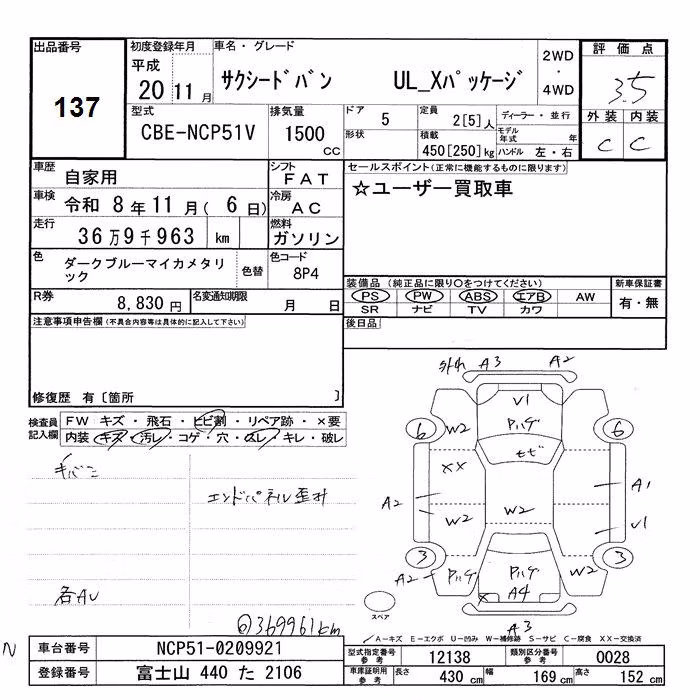 出品番号
137
初度登録年月
平成
20 11 月
車名・グレード
サクシードバン UL_Xパッケージ
2WD
・
4WD
評価点
3.5
外装 内装
C C
型式
CBE-NCP51V
排気量
1500
CC
ドア 5
形状
定員 2[5]人
積載
450[250]kg
ディーラー・並行
モデル
年式 年
ハンドル 左・右
車歴 自家用
シフト FAT
車検 令和 8年 11月( 6日)
冷房 AC
走行 36万9千963 km
燃料 ガソリン
色 ダークブルーマイカメタリック
色替
色コード
8P4
R券 8,830 円
名変通知期限 月 日
セールスポイント(正常に機能するものに限ります)
☆ユーザー買取車
装備品(純正品に限り〇をつけてください)
PS PW ABS エアB AW
SR ナビ TV カワ
新車保証書
有・無
後日品
注意事項申告欄(不具合内容等は具体的に記入して下さい)
修復歴 有〔箇所 〕
検査員
記入欄
FW キズ・飛石・ヒビ割・リペア跡・×要
内装 キズ・汚レ・コゲ・穴・スレ・キレ・破レ
エンドパネル歪み
各AU
369961km
外れ A3 A2
V1
パハゲ
6 W2 6
モビ
XX
A2 A1
W2 W2
V1
3 3
A2 パハゲ パハゲ W2
× A4
A3
スペア
A-キズ E-エクボ U-凹み W-補修跡 S-サビ C-腐食 XX-交換済
N
車台番号 NCP51-0209921
登録番号 富士山 440 た 2106
型式指定番号
参考
12138
類別区分番号
参考
0028
車庫証明用
参考
長さ 430 cm 幅 169 cm 高さ 152 cm